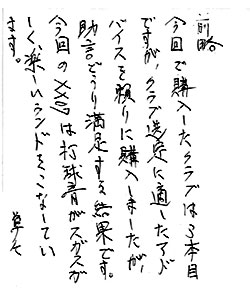 前略
今回で購入したクラブは3本目
ですが、クラブ選定に適したアド
バイスを頼りに購入しましたが、
助言どうり満足する結果です。
今回のXXIOは打球音がスガスガ
しく、楽しいランドをこなしてい
ます。
草々